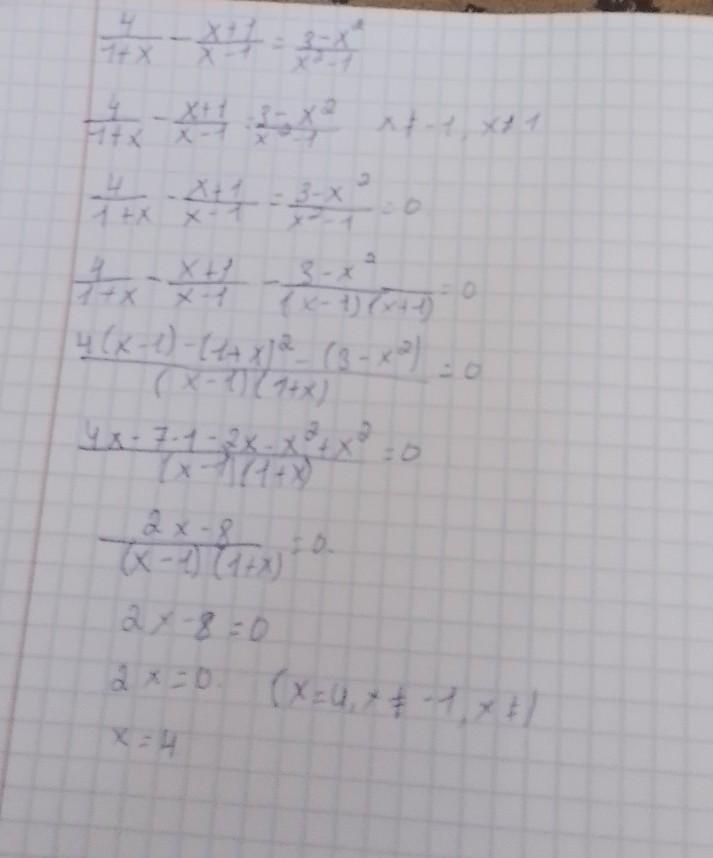 4/(1+x) - (x+1)/(x-1) = (3-x²)/(x²-1)
4/(1+x) - (x+1)/(x-1) = (3-x²)/(x²-1) x≠-1, x≠1
4/(1+x) - (x+1)/(x-1) = (3-x²)/(x²-1) = 0
4/(1+x) - (x+1)/(x-1) - (3-x²)/((x-1)(x+1)) = 0
(4(x-1)-(1+x)²-(3-x²))/((x-1)(1+x)) = 0
(4x-7-1-2x-x²+x²)/((x-1)(1+x)) = 0
(2x-8)/((x-1)(1+x)) = 0.
2x-8=0
2x=0. (x=4, x≠-1, x≠1
x=4